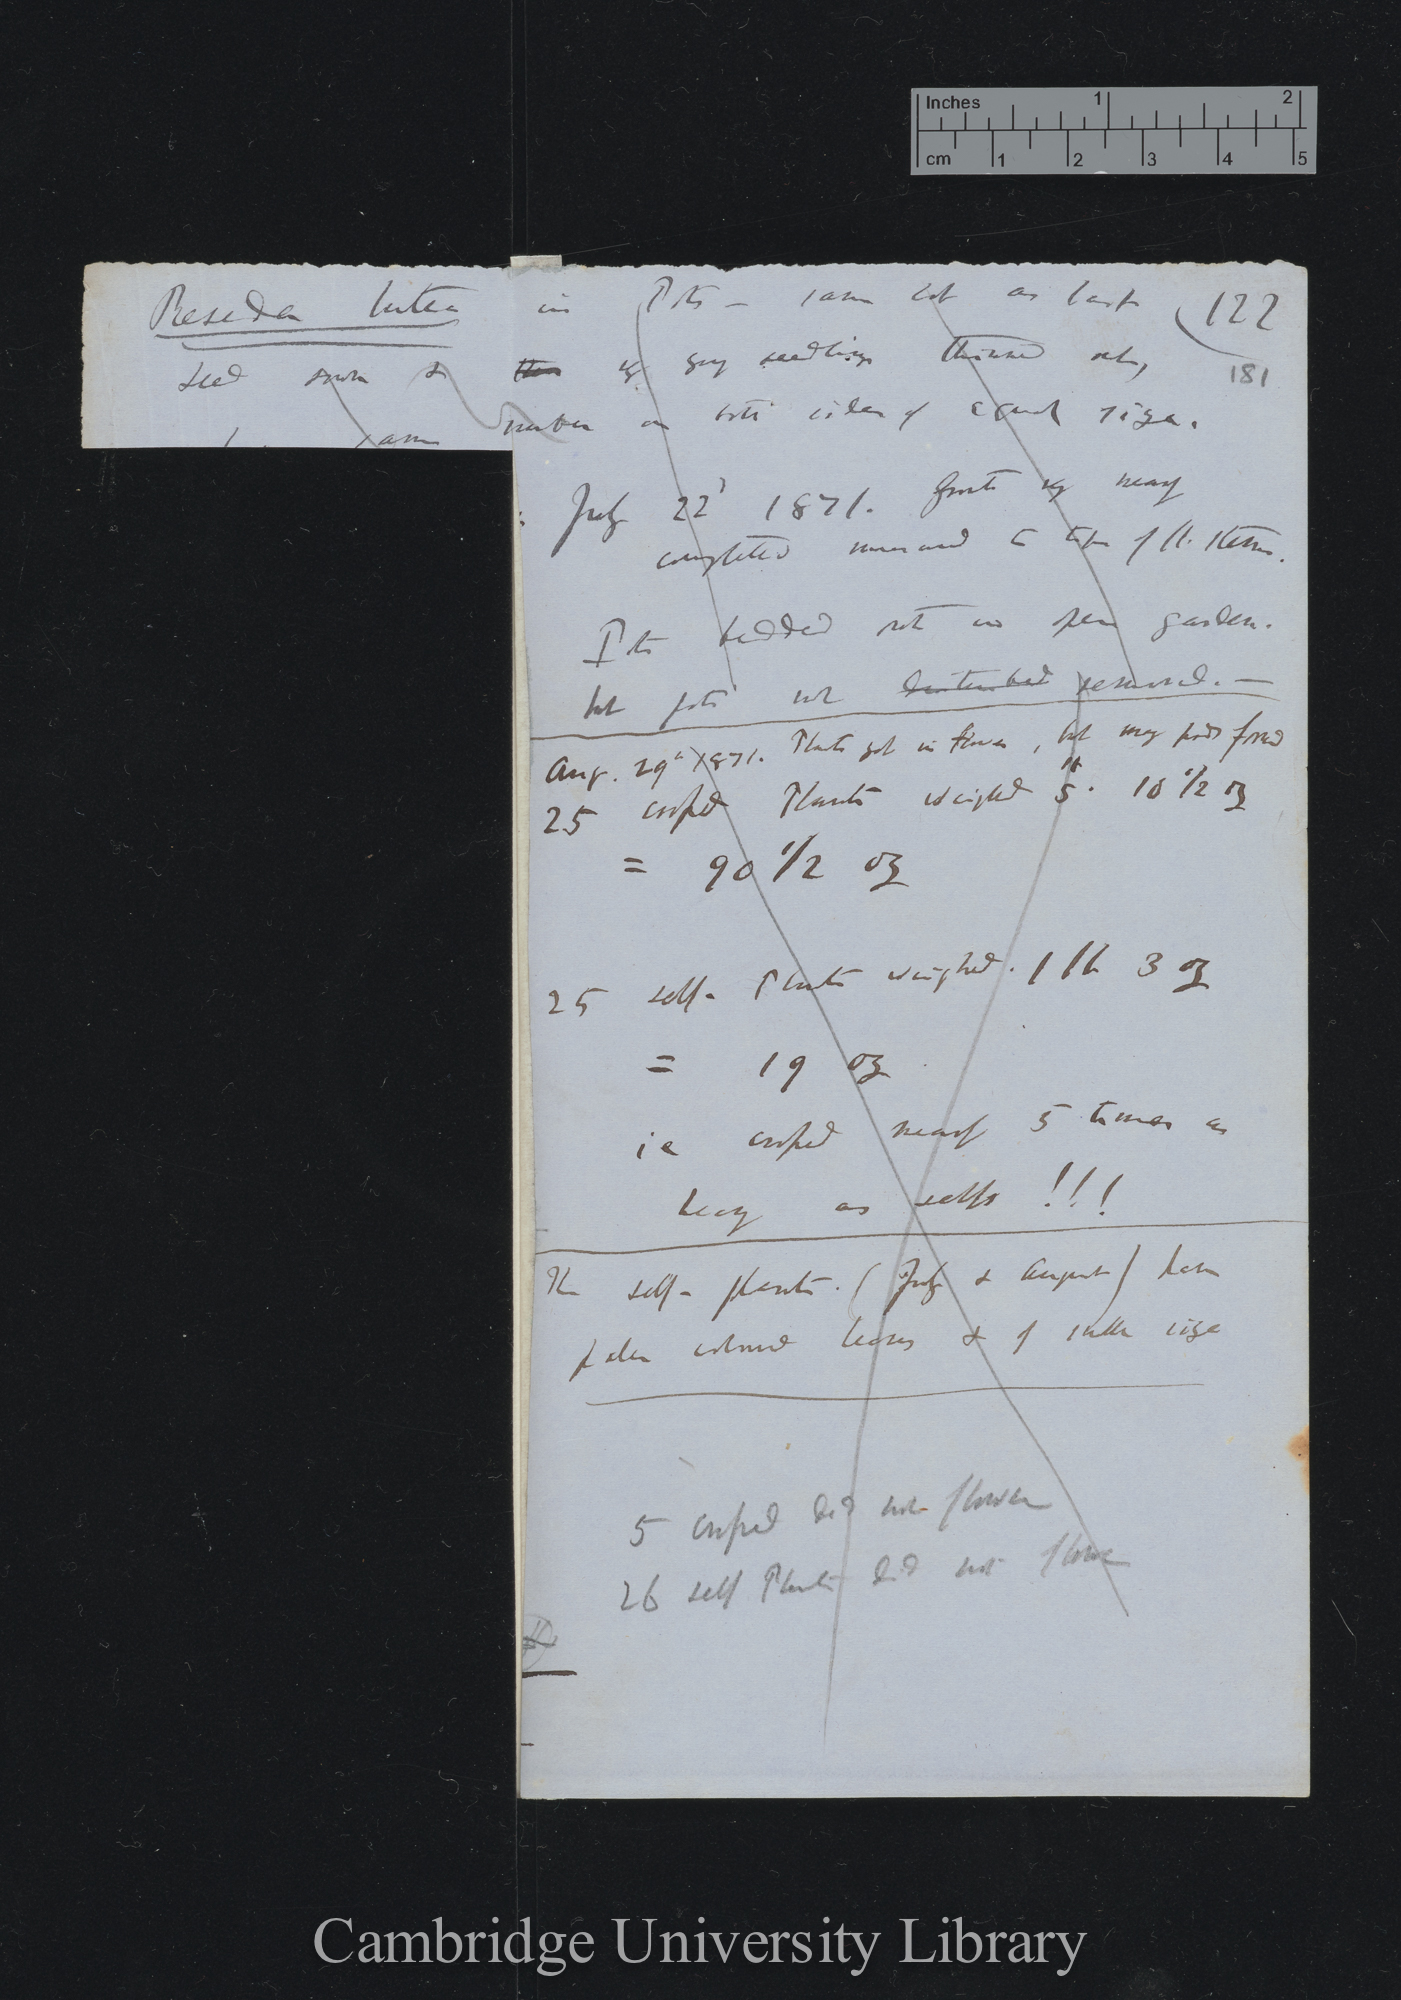 Inches 1 2
cm 1 2 3 4 5
Reseda lutea in Pots — same lot as last (122
181
seed sown & young seedlings thinned out,
same number on both sides of equal size.
July 22d 1871.
completed measured to tips of the stems.
Pots bedded out in open garden.
but pots not disturbed removed. —
Aug. 29th 1871. Plants got in flower, but many pods formed
25 crossed Plants weighed 5 lb. 10 1/2 oz
= 90 1/2 oz
25 self- Plants weighed. 1 lb 3 oz
= 19 oz
ie crossed nearly 5 times as
heavy as selfs !!!
The self- plants. (July & August) have
paler coloured leaves & of smaller size
5 crossed did not flower
26 self Plants did not flower
Cambridge University Library